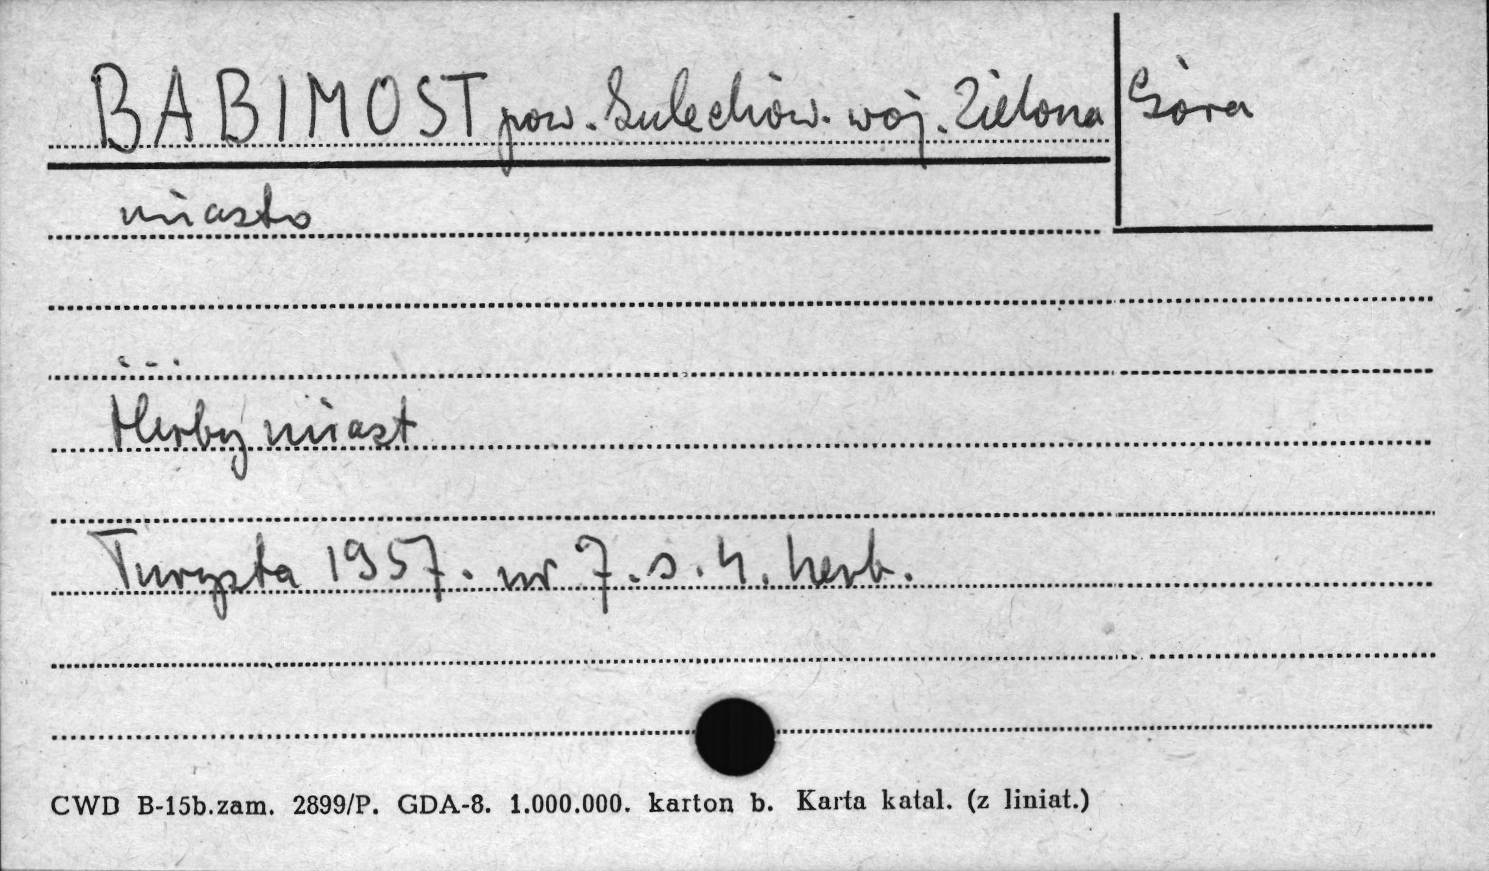 BABIMOST pow. Sulechów. woj. Zielona Góra
miasto
...
Herby miast
Turysta 1957. nr 7. s. 4. herb.
CWD B-15b.zam. 2899/P. GDA-8. 1.000.000. karton b. Karta katal. (z liniat.)